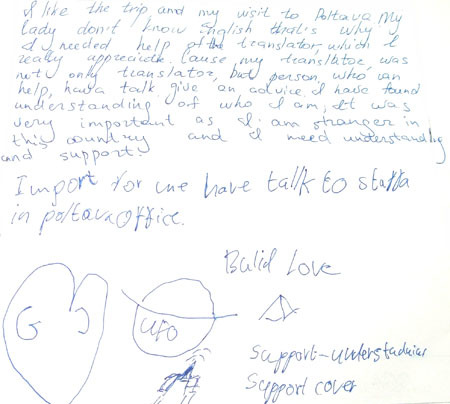 I like the trip and my visit to Poltava My
lady don't know English that's why
I needed help of the translator, which I
really appreciate. Cause my translator, was
not only translator, but person, who can
help, have a talk, give an advice. I have found
understanding of who I am, It was
very important as I am stranger in
this country and I need understanding
and support.
Import for me have tallk to staffa
in poltava office.
Bulid Love
G J
UFO
Support-understadnias
Support cover